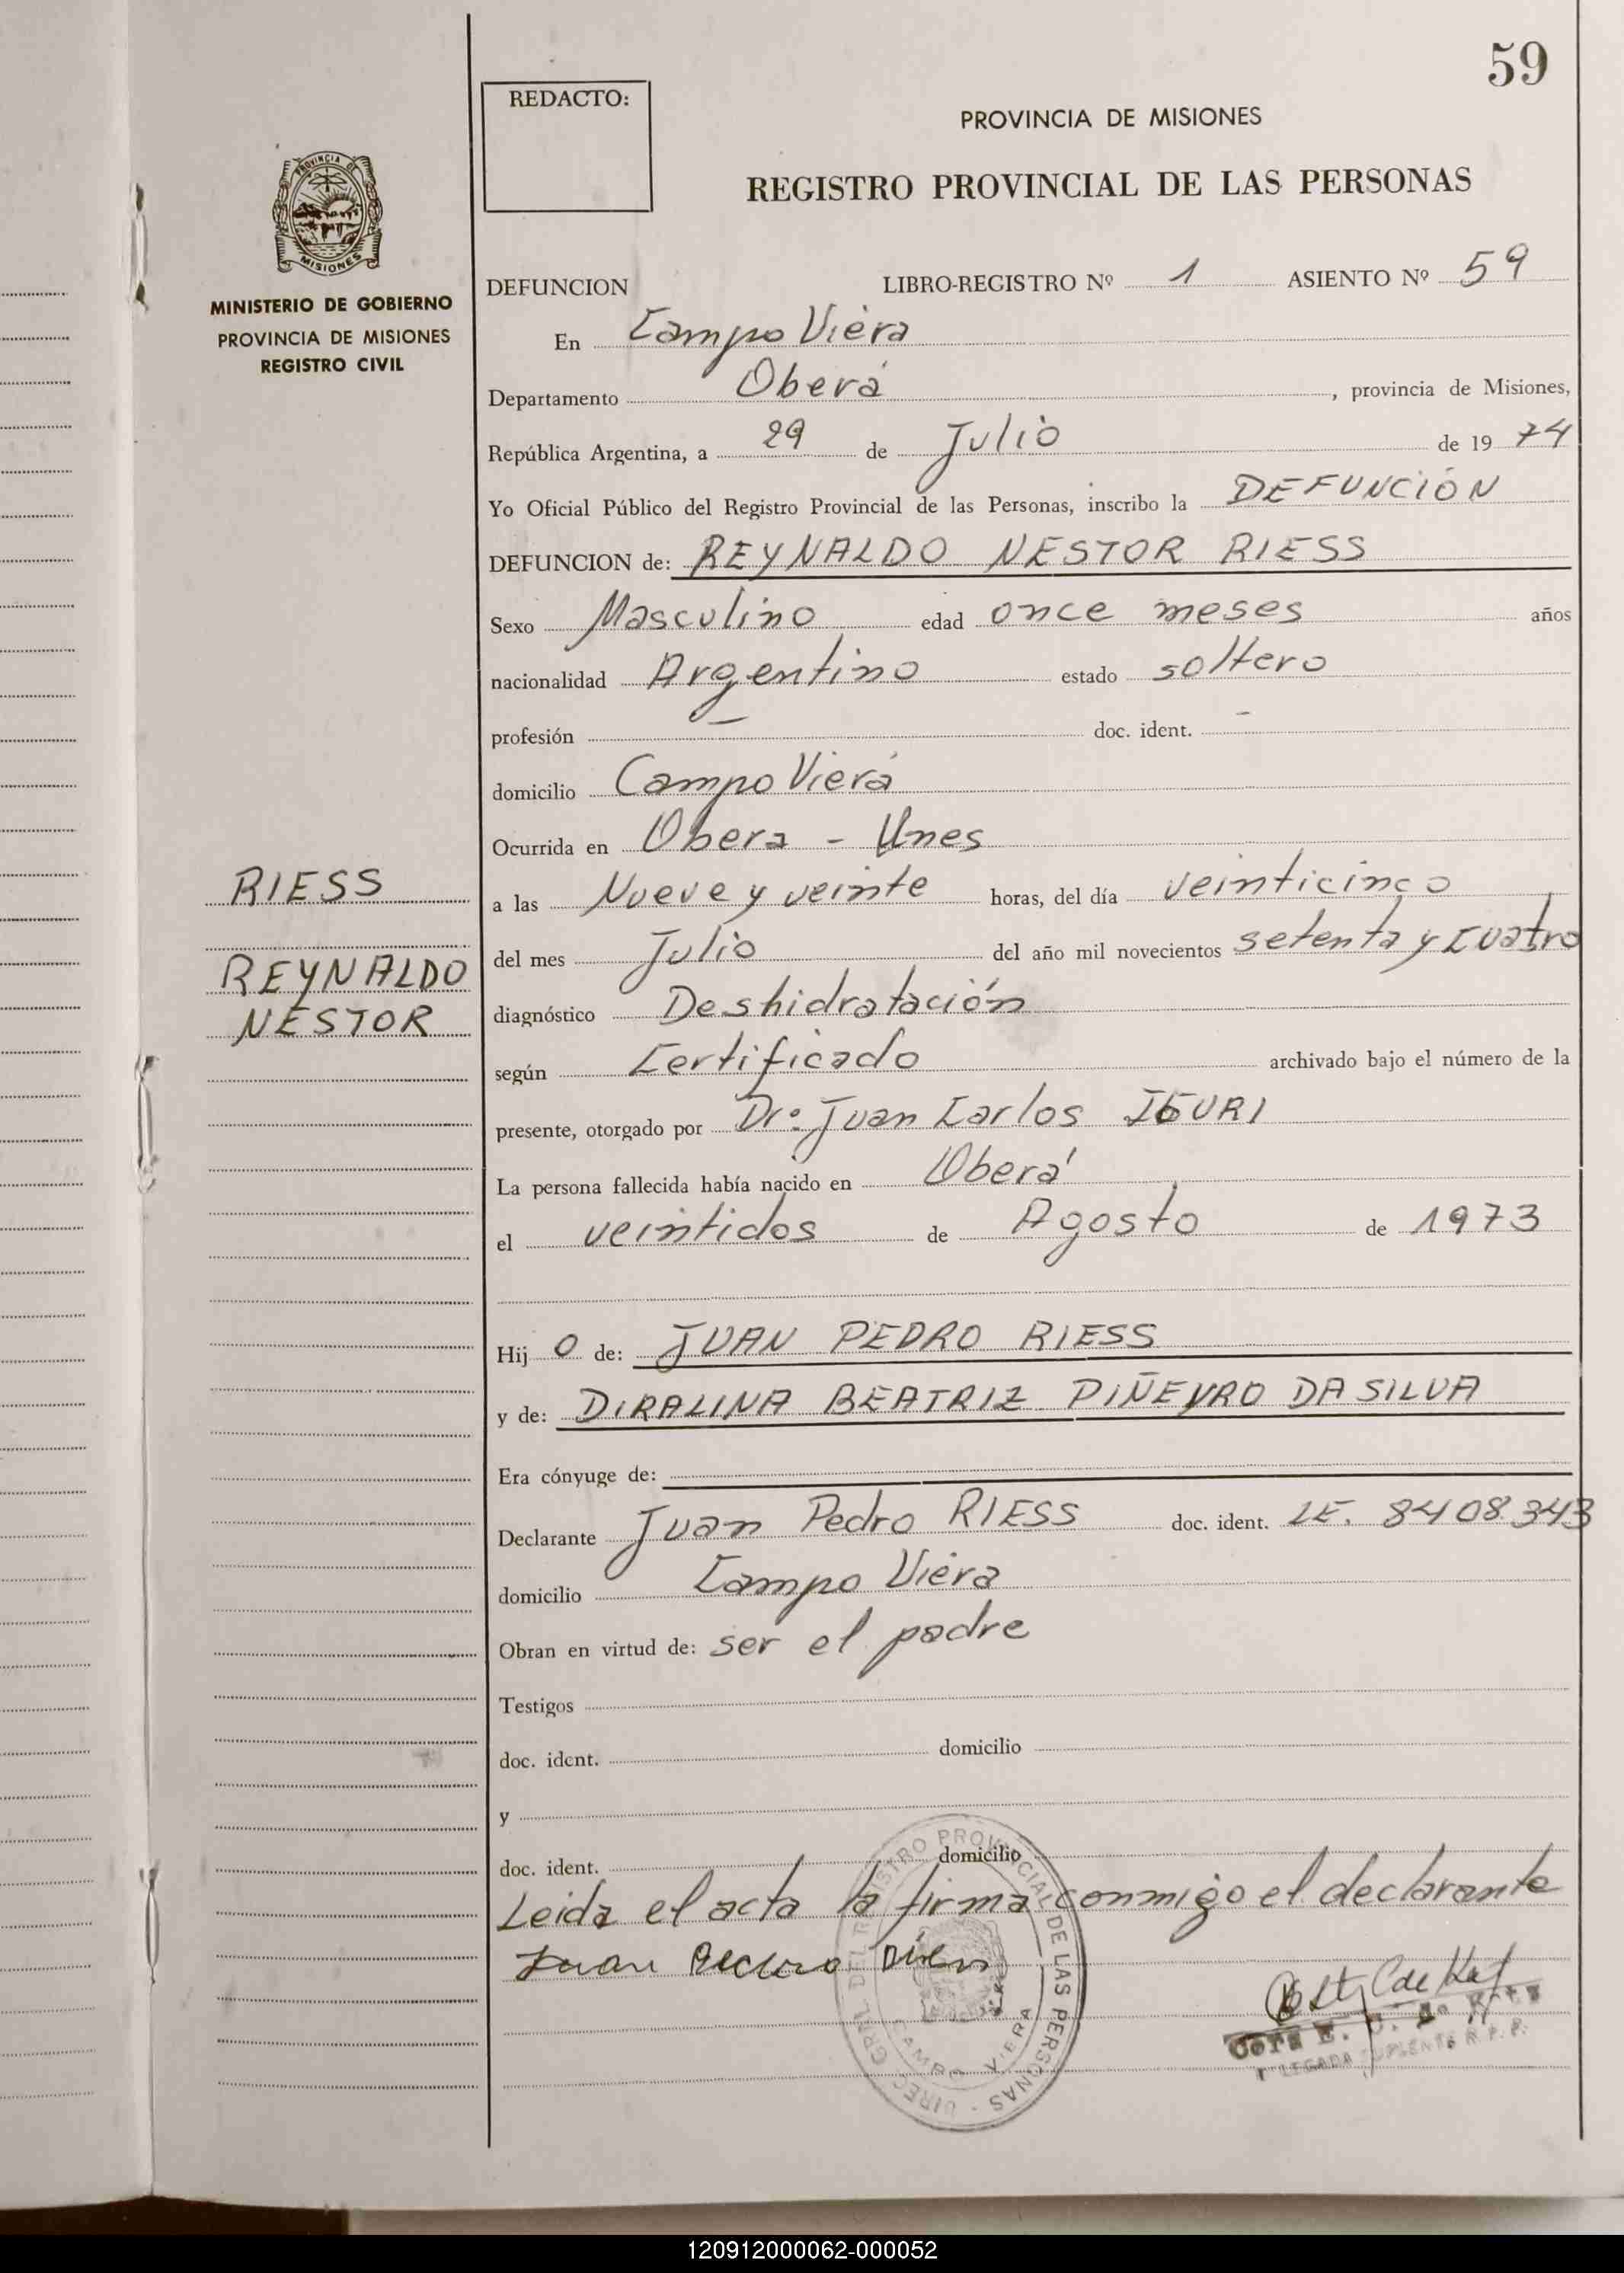 59
REDACTO:
PROVINCIA DE MISIONES
REGISTRO PROVINCIAL DE LAS PERSONAS
PROVINCIA DE
MISIONES
MINISTERIO DE GOBIERNO
PROVINCIA DE MISIONES
REGISTRO CIVIL
DEFUNCION LIBRO-REGISTRO Nº 1 ASIENTO Nº 59
En Campo Viera
Departamento Oberá, provincia de Misiones,
República Argentina, a 29 de Julio de 1974
Yo Oficial Público del Registro Provincial de las Personas, inscribo la DEFUNCIÓN
DEFUNCION de: REYNALDO NESTOR RIESS
Sexo Masculino edad once meses años
nacionalidad Argentino estado soltero
profesión — doc. ident. —
domicilio Campo Viera
Ocurrida en Obera - Unes
a las Nueve y veinte horas, del día veinticinco
del mes Julio del año mil novecientos setenta y cuatro
diagnóstico Deshidratación
según Certificado archivado bajo el número de la
presente, otorgado por Dr: Juan Carlos
La persona fallecida había nacido en Oberá
el veintidos de Agosto de 1973
Hijo de: JUAN PEDRO RIESS
y de: DIRALINA BEATRIZ PIÑEYRO DA SILVA
Era cónyuge de:
Declarante Juan Pedro RIESS doc. ident. LE. 8408.343
domicilio Campo Viera
Obran en virtud de: ser el padre
Testigos
doc. ident. domicilio
y
doc. ident. domicilio
Leida el acta la firma conmigo el declarante
Juan Pedro
RIESS
REYNALDO
NESTOR
DIREC. GRAL. DEL REGISTRO PROVINCIAL DE LAS PERSONAS
CAMPO VIERA
SUPLENTE R. P. P.
120912000062-000052